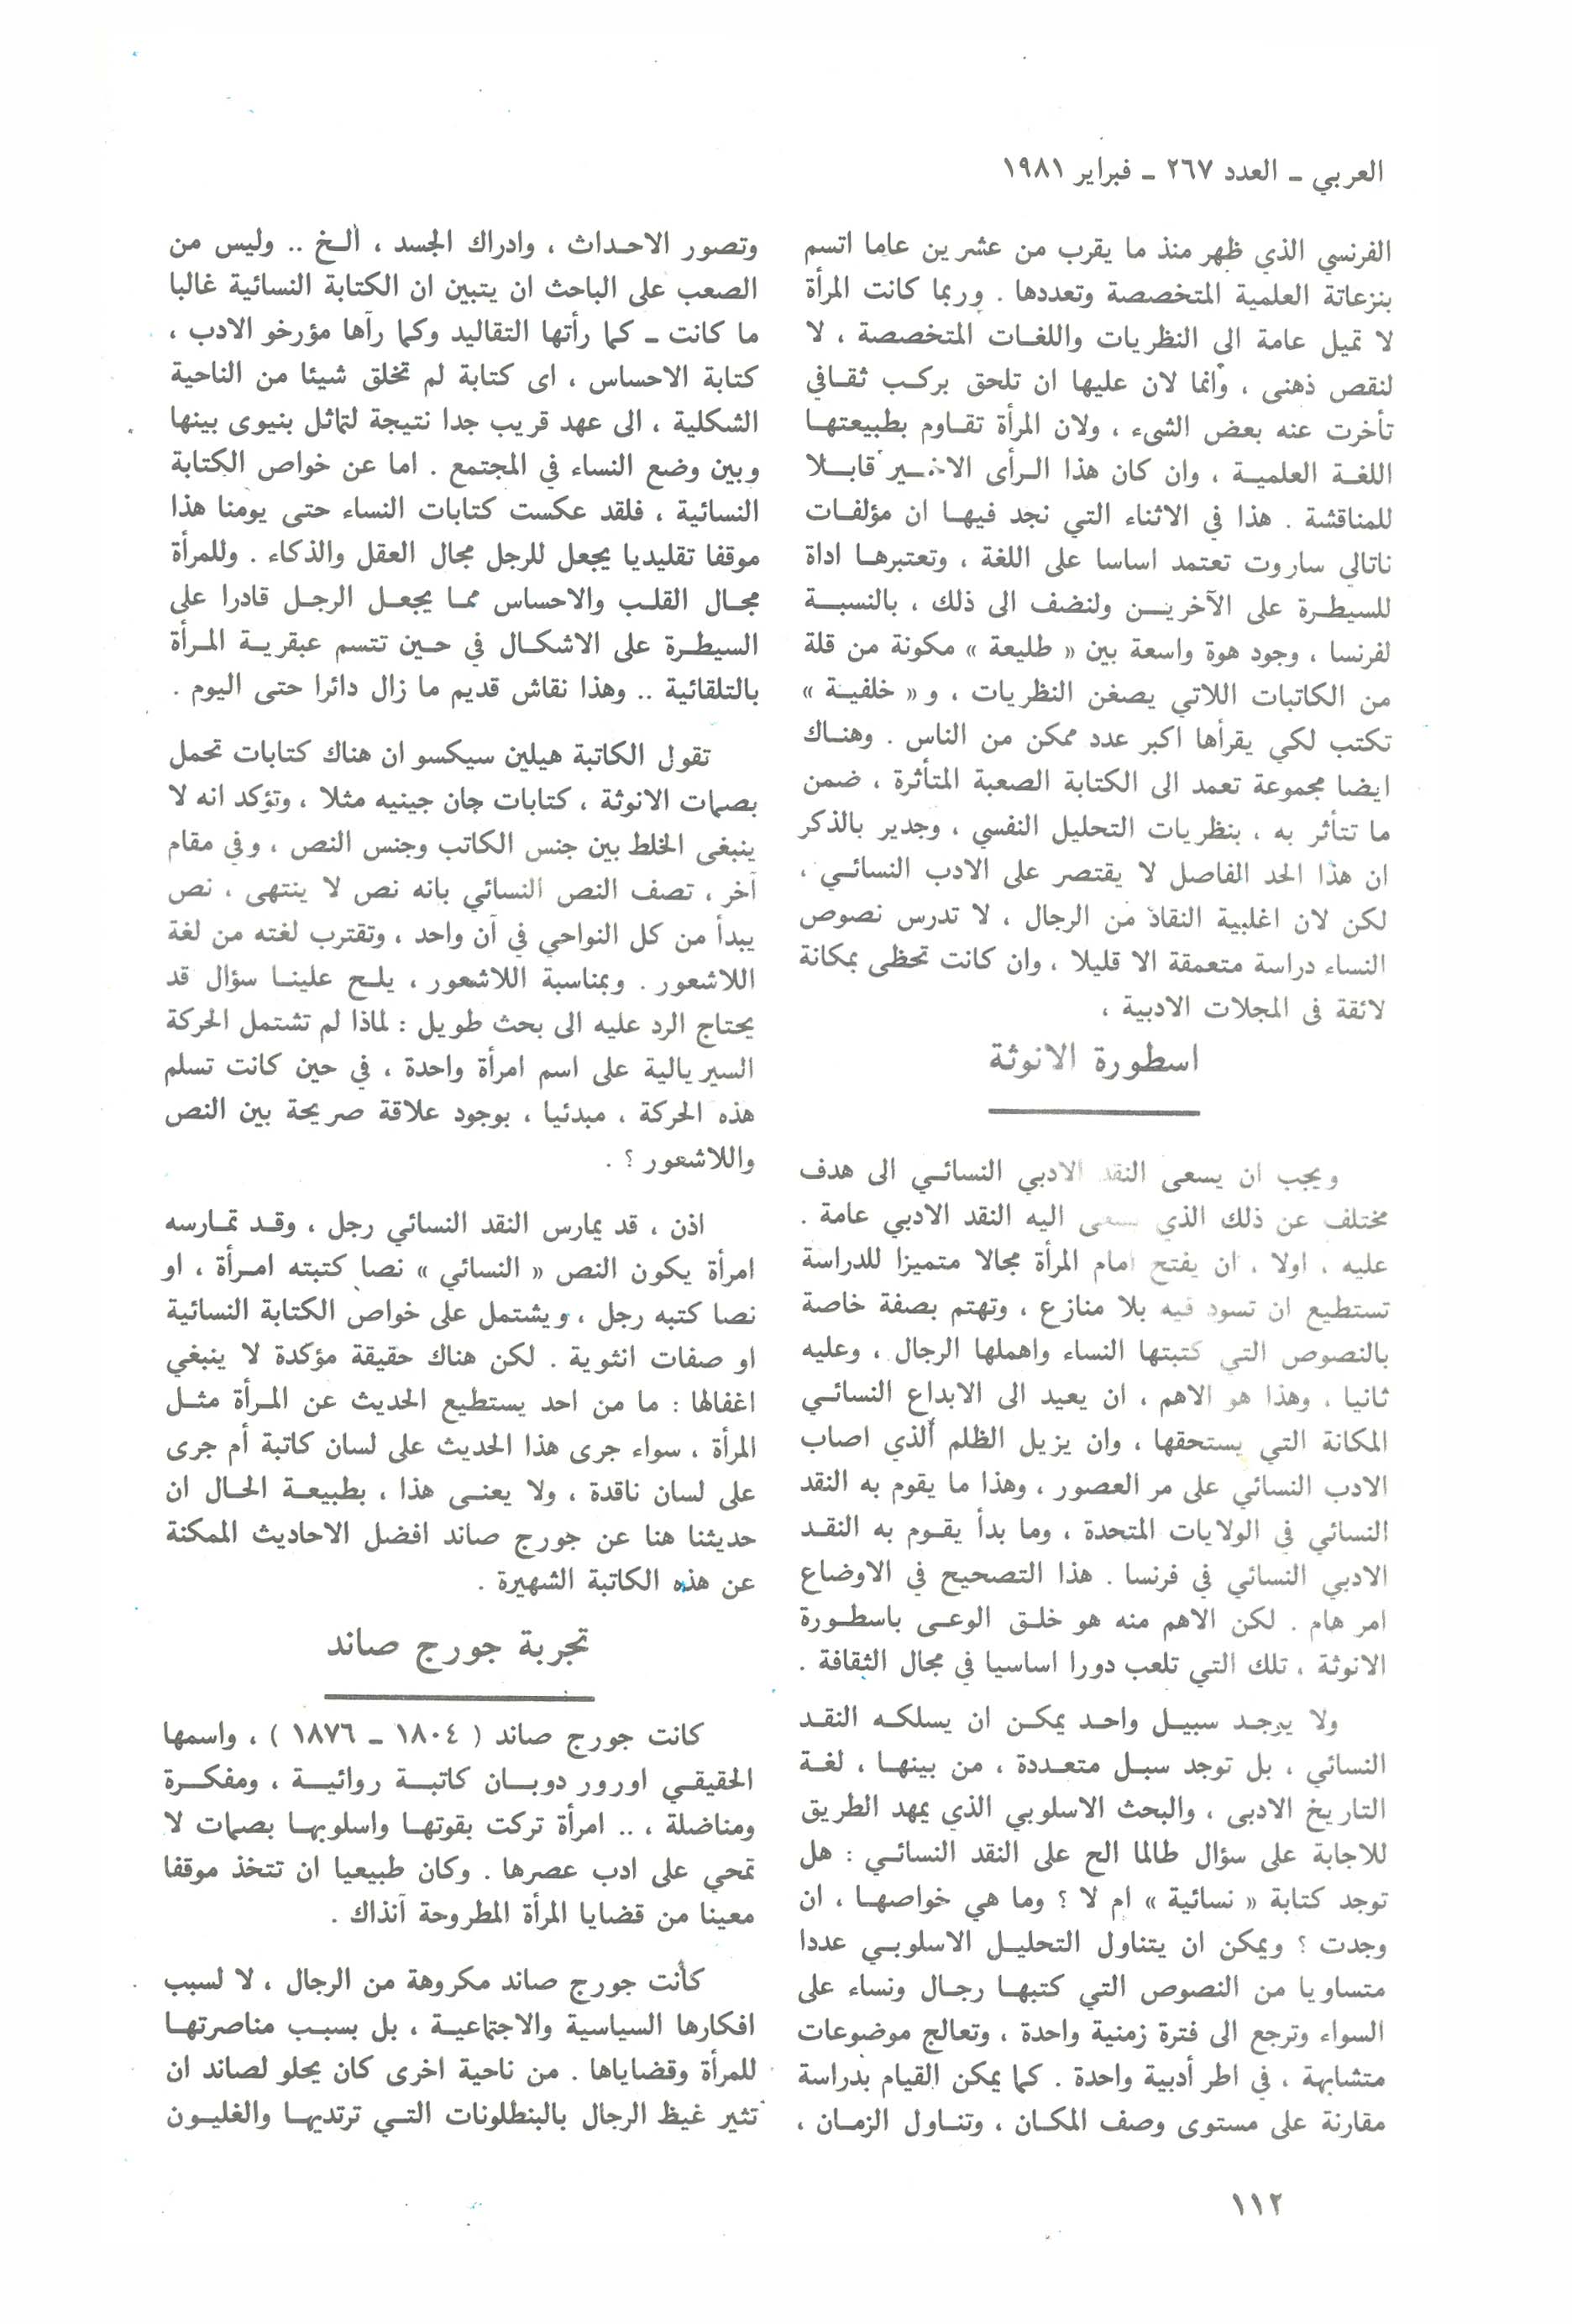 العربي ـ العدد ٢٦٧ ـ فبراير ١٩٨١
الفرنسي الذي ظهر منذ ما يقرب من عشرين عاما اتسم
بنزعاتة العلمية المتخصصة وتعددها . وربما كانت المرأة
لا تميل عامة الي النظريات واللغات المتخصصة ، لا
لنقص ذهنى ، وانما لان عليها ان تلحق بركب ثقافي
تأخرت عنه بعض الشىء ، ولان المرأة تقاوم بطبيعتها
اللغة العلمية ، وان كان هذا الرأى الاخير قابلا
للمناقشة . هذا في الاثناء التي نجد فيها ان مؤلفات
ناتالي ساروت تعتمد اساسا على اللغة ، وتعتبرها اداة
للسيطرة على الآخرين ولنضف الى ذلك ، بالنسبة
لفرنسا ، وجود هوة واسعة بين « طليعة » مكونة من قلة
من الكاتبات اللاتي يصغن النظريات ، و « خلفية »
تكتب لكي يقرأها اكبر عدد ممكن من الناس . وهناك
ايضا مجموعة تعمد الى الكتابة الصعبة المتأثرة ، ضمن
ما تتأثر به ، بنظريات التحليل النفسي ، وجدير بالذكر
ان هذا الحد الفاصل لا يقتصر على الادب النسائي ،
لكن لان اغلبية النقاد من الرجال ، لا تدرس نصوص
النساء دراسة متعمقة الا قليلا ، وان كانت تحظى بمكانة
لائقة فى المجلات الادبية ،
اسطورة الانوثة
ويجب ان يسعى النقد الادبي النسائي الى هدف
مختلف عن ذلك الذي يسعى اليه النقد الادبي عامة .
عليه ، اولا ، ان يفتح امام المرأة مجالا متميزا للدراسة
تستطيع ان تسود فيه بلا منازع ، وتهتم بصفة خاصة
بالنصوص التي كتبتها النساء واهملها الرجال ، وعليه
ثانيا ، وهذا هو الاهم ، ان يعيد الى الابداع النسائي
المكانة التي يستحقها ، وان يزيل الظلم ألذي اصاب
الادب النسائي على مر العصور ، وهذا ما يقوم به النقد
النسائي في الولايات المتحدة ، وما بدأ يقوم به النقد
الادبي النسائي في فرنسا . هذا التصحيح في الاوضاع
امر هام . لكن الاهم منه هو خلق الوعى باسطورة
الانوثة ، تلك التي تلعب دورا اساسيا في مجال الثقافة .
ولا يوجد سبيل واحد يمكن ان يسلكه النقد
النسائي ، بل توجد سبل متعددة ، من بينها ، لغة
التاريخ الادبى ، والبحث الاسلوبي الذي يمهد الطريق
للاجابة على سؤال طالما الح على النقد النسائي : هل
توجد كتابة « نسائية » ام لا ؟ وما هي خواصها ، ان
وجدت ؟ ويمكن ان يتناول التحليل الاسلوبي عددا
متساويا من النصوص التي كتبها رجال ونساء على
السواء وترجع الى فترة زمنية واحدة ، وتعالج موضوعات
متشابهة ، في اطر أدبية واحدة . كما يمكن القيام بدراسة
مقارنة على مستوى وصف المكان ، وتناول الزمان ،
وتصور الاحداث ، وادراك الجسد ، ألخ .. وليس من
الصعب على الباحث ان يتبين ان الكتابة النسائية غالبا
ما كانت ـ كما رأتها التقاليد وكما رآها مؤرخو الادب ،
كتابة الاحساس ، اى كتابة لم تخلق شيئا من الناحية
الشكلية ، الى عهد قريب جدا نتيجة لتماثل بنيوى بينها
وبين وضع النساء في المجتمع . اما عن خواص الكتابة
النسائية ، فلقد عكست كتابات النساء حتى يومنا هذا
موقفا تقليديا يجعل للرجل مجال العقل والذكاء . وللمرأة
مجال القلب والاحساس مما يجعل الرجل قادرا على
السيطرة على الاشكال في حين تتسم عبقرية المرأة
بالتلقائية .. وهذا نقاش قديم ما زال دائرا حتى اليوم .
تقول الكاتبة هيلين سيكسو ان هناك كتابات تحمل
بصمات الانوثة ، كتابات جان جينيه مثلا ، وتؤكد انه لا
ينبغى الخلط بين جنس الكاتب وجنس النص ، وفي مقام
آخر ، تصف النص النسائي بانه نص لا ينتهى ، نص
يبدأ من كل النواحي في آن واحد ، وتقترب لغته من لغة
اللاشعور . وبمناسبة اللاشعور ، يلح علينا سؤال قد
يحتاج الرد عليه الى بحث طويل : لماذا لم تشتمل الحركة
السيريالية على اسم امرأة واحدة ، في حين كانت تسلم
هذه الحركة ، مبدئيا ، بوجود علاقة صريحة بين النص
واللاشعور ؟ .
اذن ، قد يمارس النقد النسائي رجل ، وقد تمارسه
امرأة يكون النص « النسائي » نصا كتبته امرأة ، او
نصا كتبه رجل ، ويشتمل على خواص الكتابة النسائية
او صفات انثوية . لكن هناك حقيقة مؤكدة لا ينبغي
اغفالها : ما من احد يستطيع الحديث عن المرأة مثل
المرأة ، سواء جرى هذا الحديث على لسان كاتبة أم جرى
على لسان ناقدة ، ولا يعنى هذا ، بطبيعة الحال ان
حديثنا هنا عن جورج صاند افضل الاحاديث الممكنة
عن هذه الكاتبة الشهيرة .
تجربة جورج صاند
كانت جورج صاند ( ١٨٠٤ ـ ١٨٧٦ ) ، واسمها
الحقيقي اورور دوبان كاتبة روائية ، ومفكرة
ومناضلة ، .. امرأة تركت بقوتها واسلوبها بصمات لا
تمحي على ادب عصرها . وكان طبيعيا ان تتخذ موقفا
معينا من قضايا المرأة المطروحة آنذاك .
كأنت جورج صاند مكروهة من الرجال ، لا لسبب
افكارها السياسية والاجتماعية ، بل بسبب مناصرتها
للمرأة وقضاياها . من ناحية اخرى كان يحلو لصاند ان
تثير غيظ الرجال بالبنطلونات التي ترتديها والغليون
١١٢